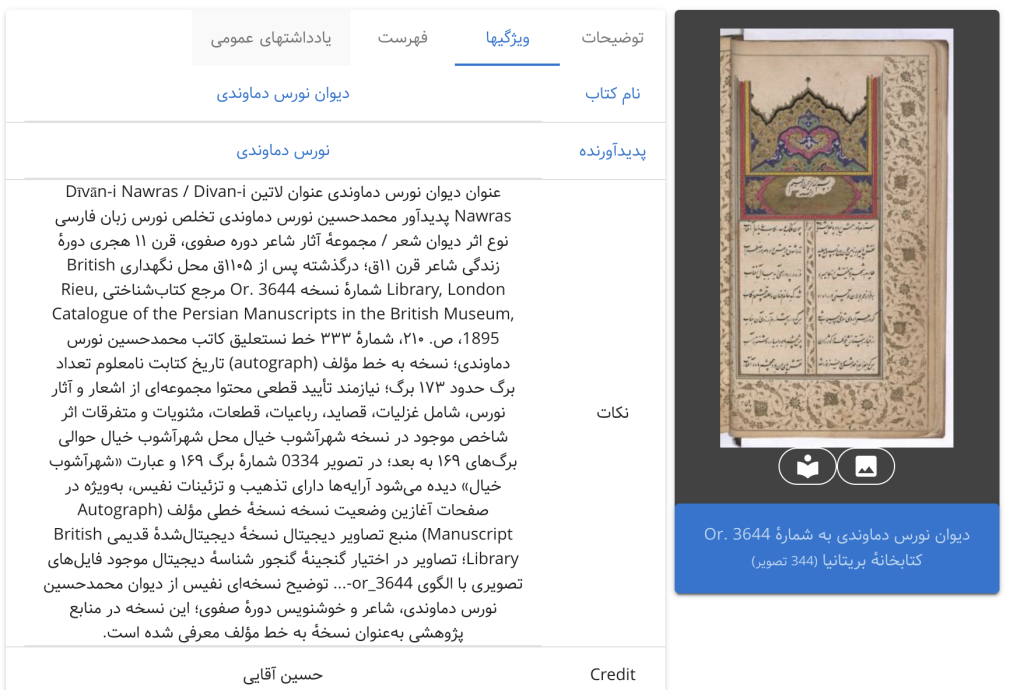 توضیحات
ویژگیها
فهرست
یادداشتهای عمومی
نام کتاب
دیوان نورس دماوندی
پدیدآورنده
نورس دماوندی
نکات
عنوان دیوان نورس دماوندی عنوان لاتین Dīvān-i Nawras / Divan-i
Nawras پدیدآور محمدحسین نورس دماوندی تخلص نورس زبان فارسی
نوع اثر دیوان شعر / مجموعهٔ آثار شاعر دوره صفوی، قرن ۱۱ هجری دورهٔ
زندگی شاعر قرن ۱۱ق؛ درگذشته پس از ۱۱۰۵ق محل نگهداری British
Library, London شمارهٔ نسخه Or. 3644 مرجع کتاب‌شناختی Rieu,
Catalogue of the Persian Manuscripts in the British Museum,
1895، ص. ۲۱۰، شمارهٔ ۳۳۳ خط نستعلیق کاتب محمدحسین نورس
دماوندی؛ نسخه به خط مؤلف (autograph) تاریخ کتابت نامعلوم تعداد
برگ حدود ۱۷۳ برگ؛ نیازمند تأیید قطعی محتوا مجموعه‌ای از اشعار و آثار
نورس، شامل غزلیات، قصاید، رباعیات، قطعات، مثنویات و متفرقات اثر
شاخص موجود در نسخه شهرآشوب خیال محل شهرآشوب خیال حوالی
برگ‌های ۱۶۹ به بعد؛ در تصویر 0334 شمارهٔ برگ ۱۶۹ و عبارت «شهرآشوب
خیال» دیده می‌شود آرایه‌ها دارای تذهیب و تزئینات نفیس، به‌ویژه در
صفحات آغازین وضعیت نسخه نسخهٔ خطی مؤلف (Autograph
Manuscript) منبع تصاویر دیجیتال نسخهٔ دیجیتال‌شدهٔ قدیمی British
Library؛ تصاویر در اختیار گنجینهٔ گنجور شناسهٔ دیجیتال موجود فایل‌های
تصویری با الگوی or_3644-... توضیح نسخه‌ای نفیس از دیوان محمدحسین
نورس دماوندی، شاعر و خوشنویس دورهٔ صفوی؛ این نسخه در منابع
پژوهشی به‌عنوان نسخهٔ به خط مؤلف معرفی شده است.
Credit
حسین آقایی
دیوان نورس دماوندی به شمارهٔ Or. 3644
کتابخانهٔ بریتانیا (344 تصویر)